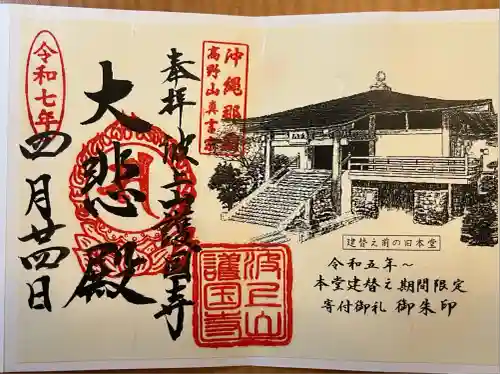 沖縄那覇
高野山真言宗
奉拝 波上山護国寺
大悲殿
令和七年
四月廿四日
波上山
護国寺
建替え前の旧本堂
令和五年~
本堂建替え期間限定
寄付御礼 御朱印